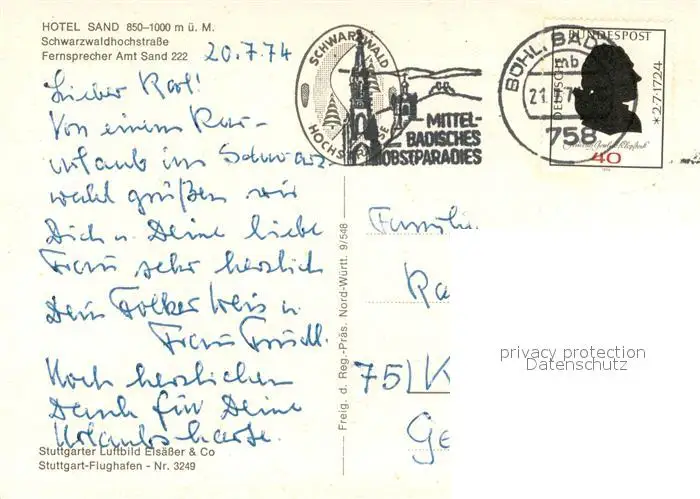 HOTEL SAND 850–1000 m ü. M.
Schwarzwaldhochstraße
Fernsprecher Amt Sand 222
20.7.74
Lieber Karl!
Von einem Kur-
urlaub im Schwarz-
wald grüßen wir
Dich u. Deine liebe
Frau sehr herzlich
Dein Volker Weis u.
Frau Trudl.
Noch herzlichen
Dank für Deine
Urlaubskarte.
Stuttgarter Luftbild Elsäßer & Co
Stuttgart-Flughafen - Nr. 3249
Freig. d. Reg.-Präs. Nord-Württ. 9/548
SCHWARZWALD
HOCHSTRASSE
MITTEL-
BADISCHES
OBSTPARADIES
BÜHL, BAD
mb
21.
758
DEUTSCHE BUNDESPOST
*2.7.1724
40
Familie
Ka
75 K
Ge
privacy protection
Datenschutz